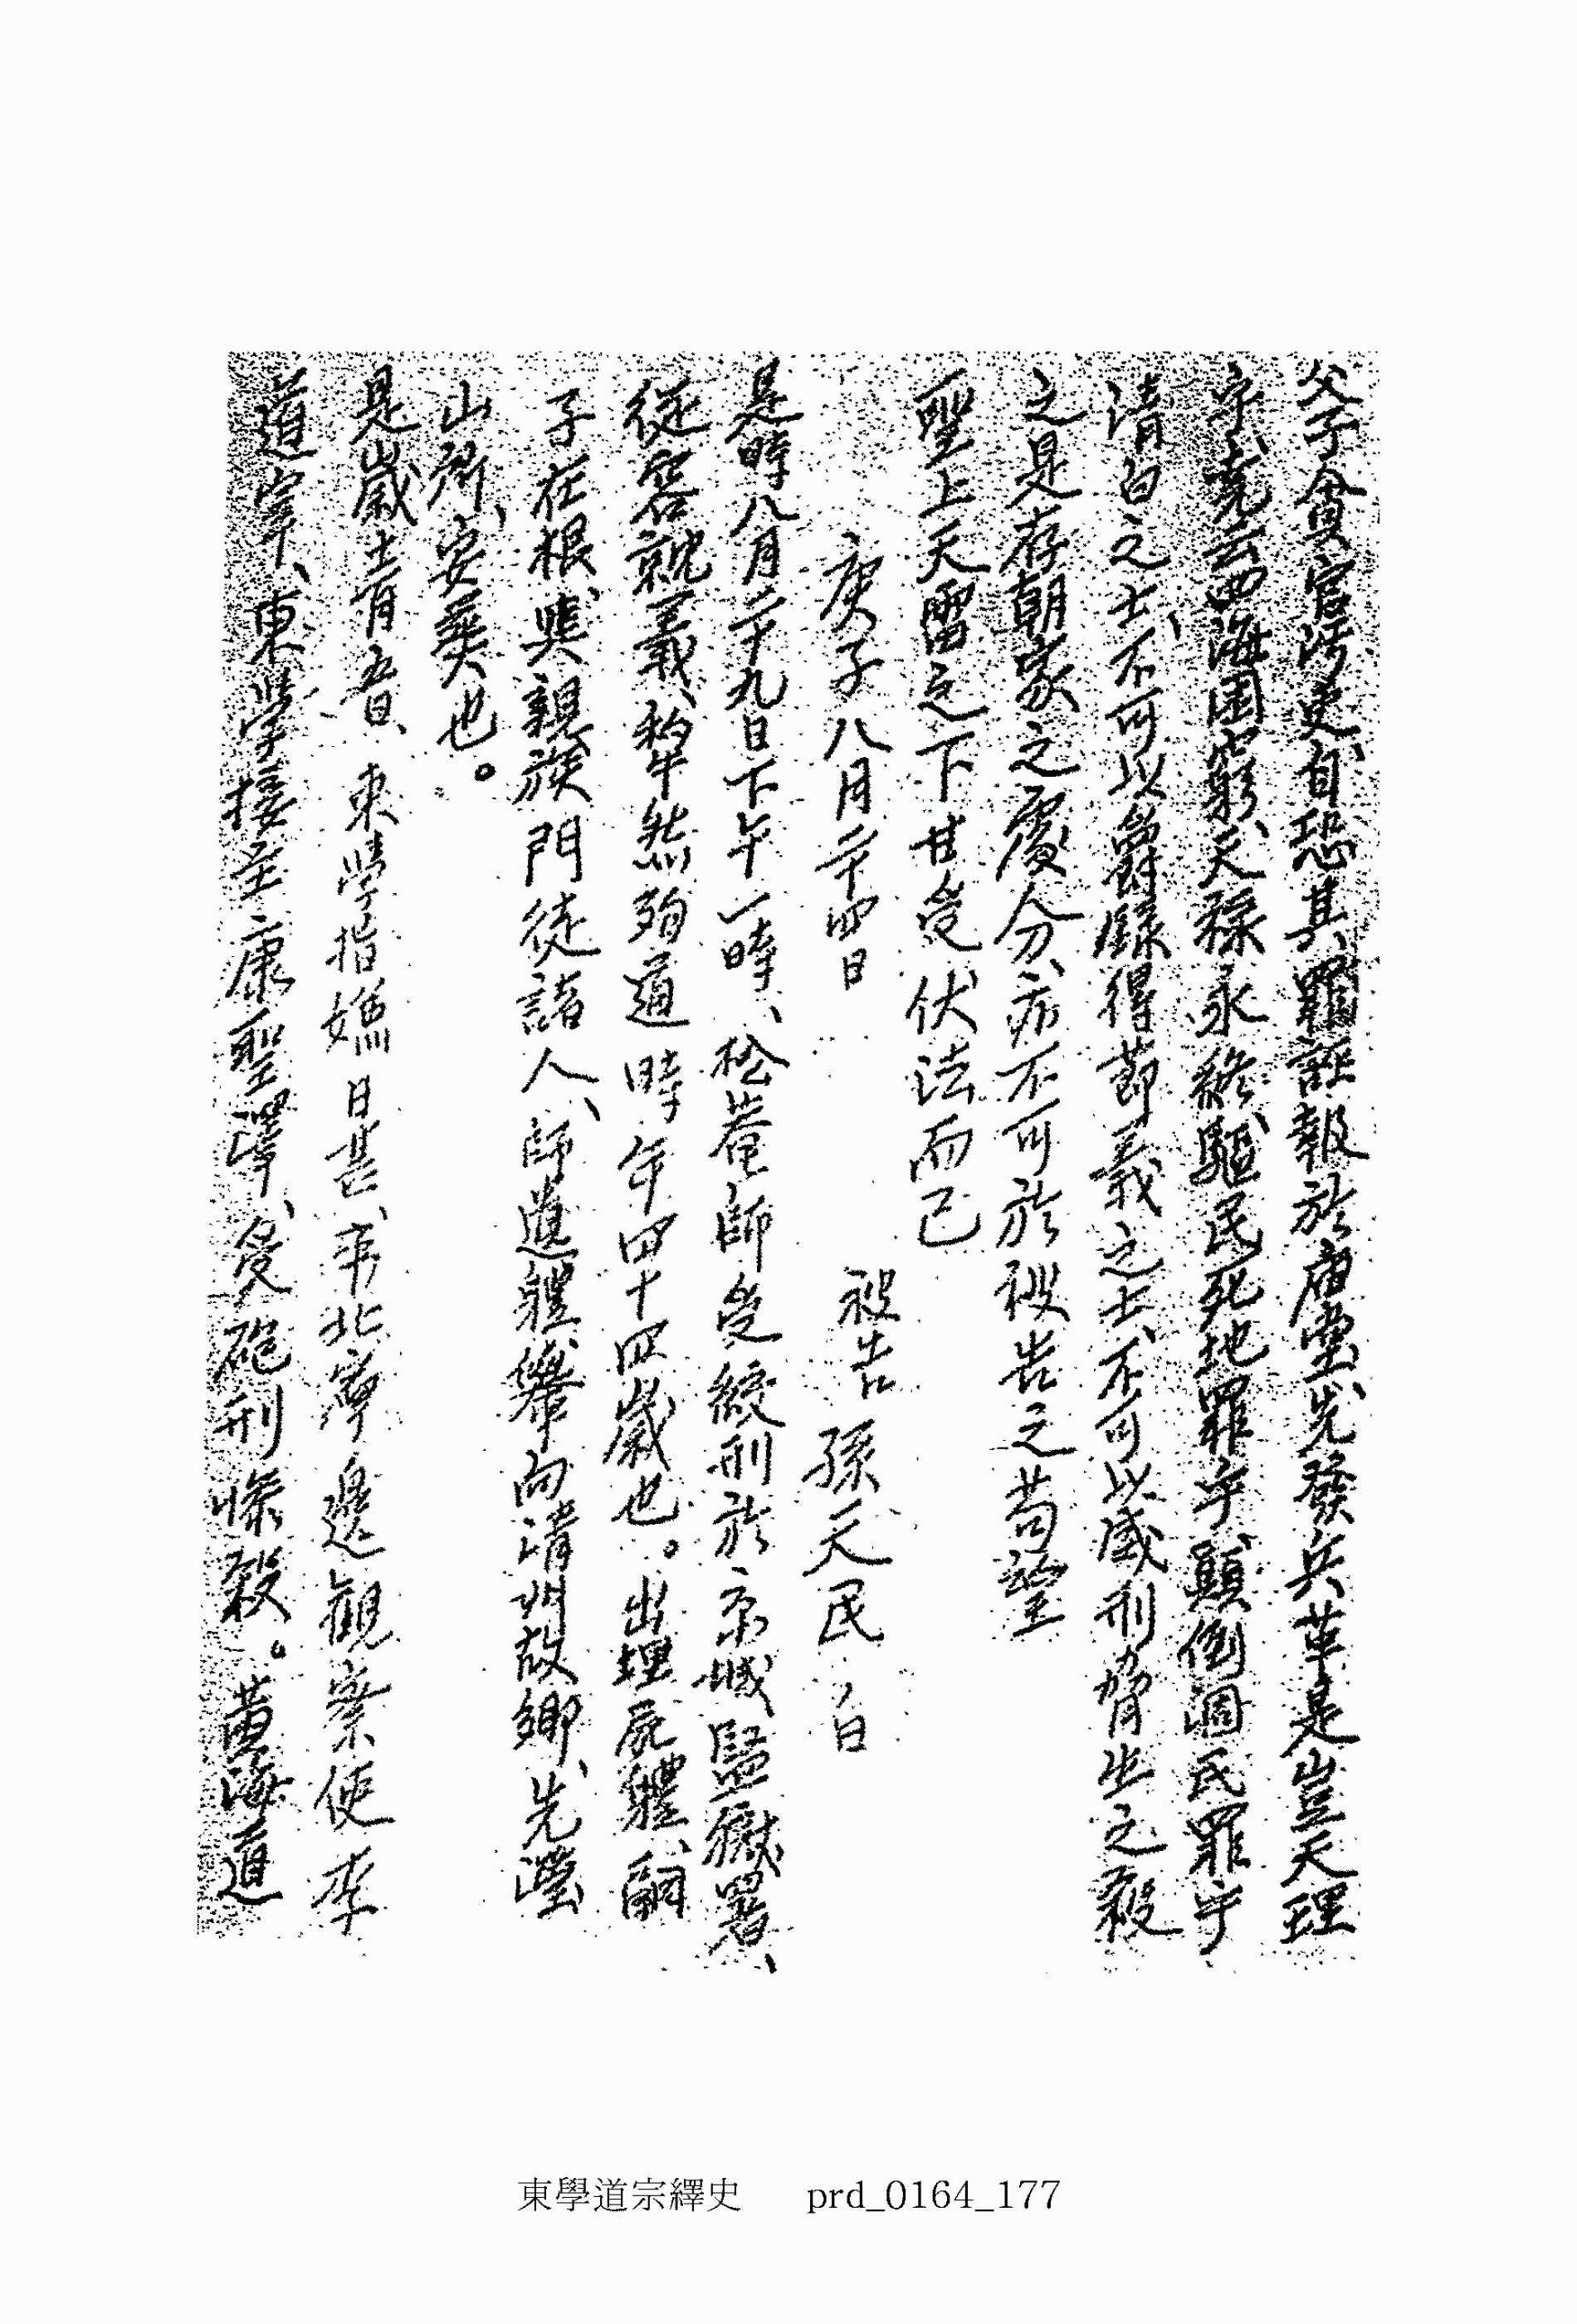 父子貪官汚吏、自恐其罪、誣報於廟堂、先發兵革是豈天理
乎、堯云四海困窮、天祿永終、驅民死地罪乎、顚倒凋民罪乎
淸白之士、不可以爵祿得、節義之士、不可以威刑脅、生之殺
之是存朝家之處分、亦不可於被告之苟望
聖上天雷之下甘受伏法而已
庚子八月二十四日　被告　孫天民　白
是時八月二十九日下午一時、松菴師受絞刑於京城監獄署、
從容就義、犂然殉道時年四十四歲也。出埋屍體、嗣
子在根、與親族門徒諸人、師道體、擧向淸州故鄕、先瀅
山所、安葬也。
是歲十二月五日、東學指嫌日甚、平北寧邊觀察使李
道宰、東學接主康聖澤、受砲刑慘殺。黃海道
東學道宗繹史　prd_0164_177